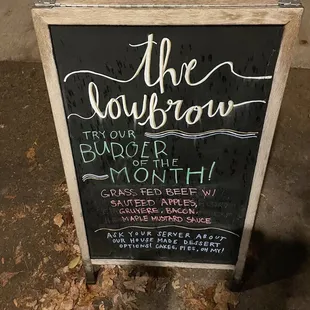 the
lowbrow
TRY OUR
BURGER
OF THE
MONTH!
GRASS FED BEEF W/
SAUTEED APPLES,
GRUYERE, BACON,
MAPLE MUSTARD SAUCE
ASK YOUR SERVER ABOUT
OUR HOUSE MADE DESSERT
OPTIONS! CAKES, PIES, OH MY!